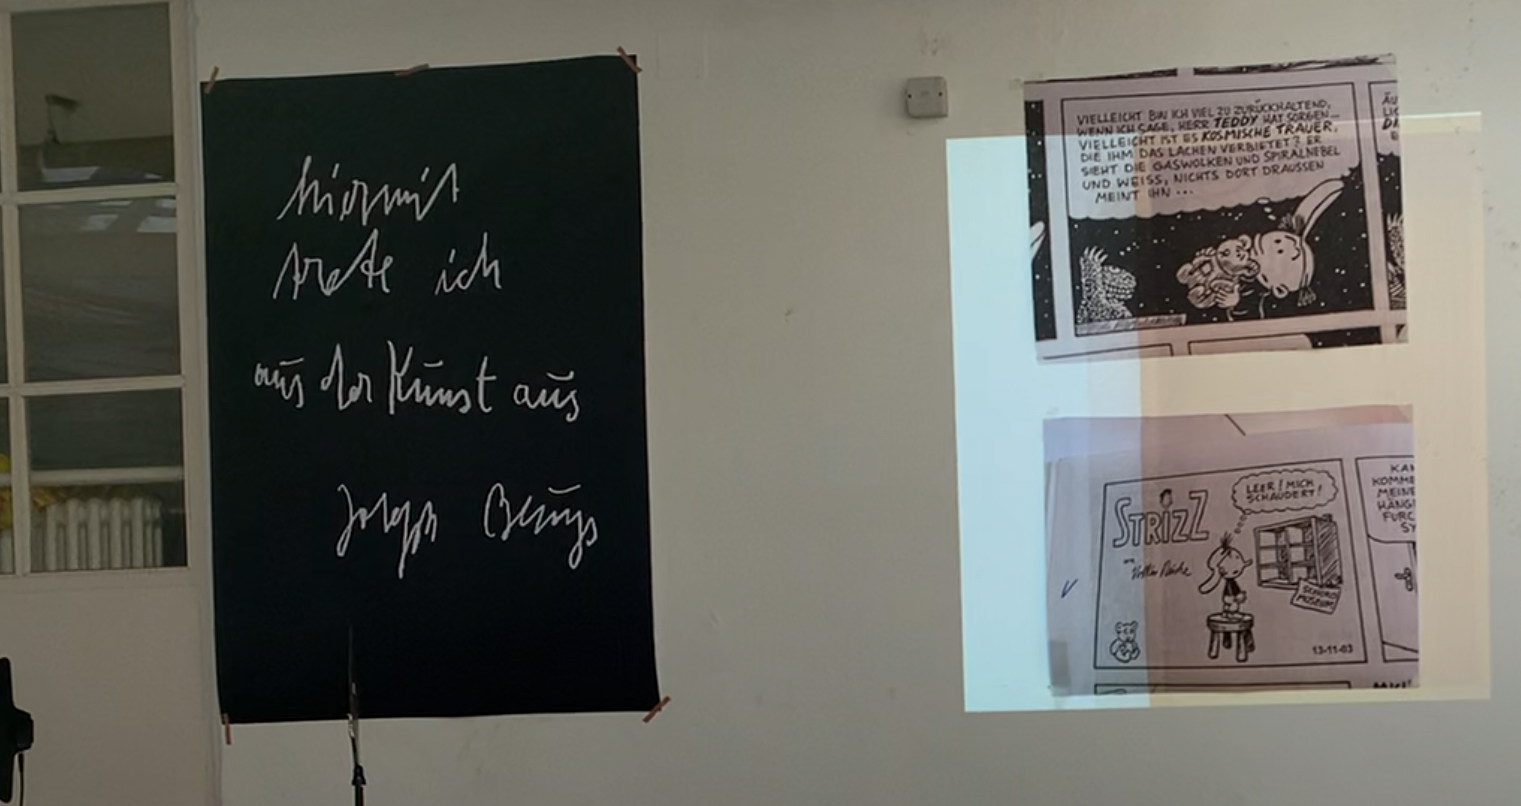 hiermit
trete ich
aus der Kunst aus
Joseph Beuys
VIELLEICHT BIN ICH VIEL ZU ZURÜCKHALTEND,
WENN ICH SAGE, HERR TEDDY HAT SORGEN...
VIELLEICHT IST ES KOSMISCHE TRAUER,
DIE IHM DAS LACHEN VERBIETET? ER
SIEHT DIE GASWOLKEN UND SPIRALNEBEL
UND WEISS, NICHTS DORT DRAUSSEN
MEINT IHN ...
ÄU
LIC
LEER! MICH
SCHAUDERT!
STRIZZ
von
Volker Reiche
SCHUND
MUSEUM
13-11-03
KAN
KOMME
MEINE
HÄNG
FURC
SY